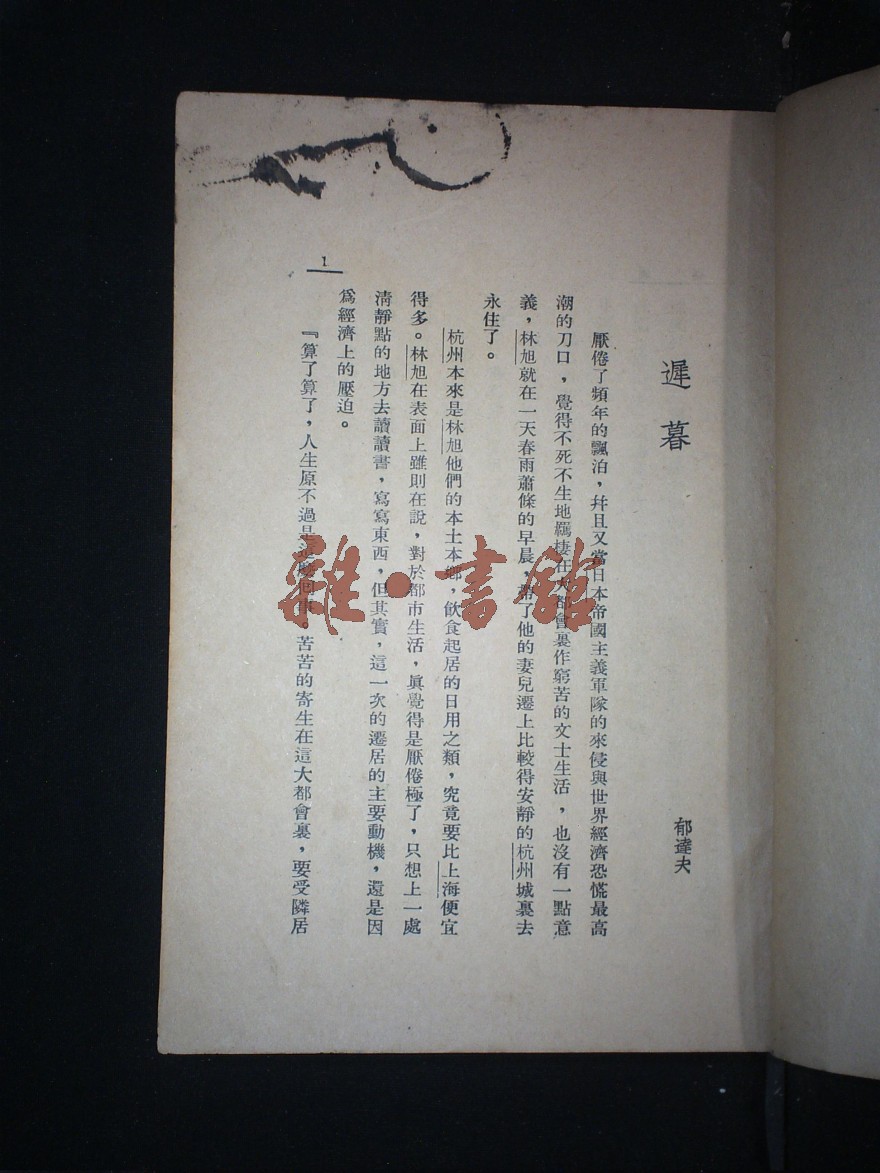 遲暮
郁達夫
厭倦了頻年的飄泊，幷且又當日本帝國主義軍隊的來侵與世界經濟恐慌最高
潮的刀口，覺得不死不生地羈棲在大都會裏作窮苦的文士生活，也沒有一點意
義，林旭就在一天春雨蕭條的早晨，帶了他的妻兒遷上比較得安靜的杭州城裏去
永住了。
杭州本來是林旭他們的本土本鄉，飲食起居的日用之類，究竟要比上海便宜
得多。林旭在表面上雖則在說，對於都市生活，眞覺得是厭倦極了，只想上一處
淸靜點的地方去讀讀書，寫寫東西，但其實，這一次的遷居的主要動機，還是因
爲經濟上的壓迫。
『算了算了，人生原不過是這麼回事。苦苦的寄生在這大都會裏，要受隣居
1
雜·書館